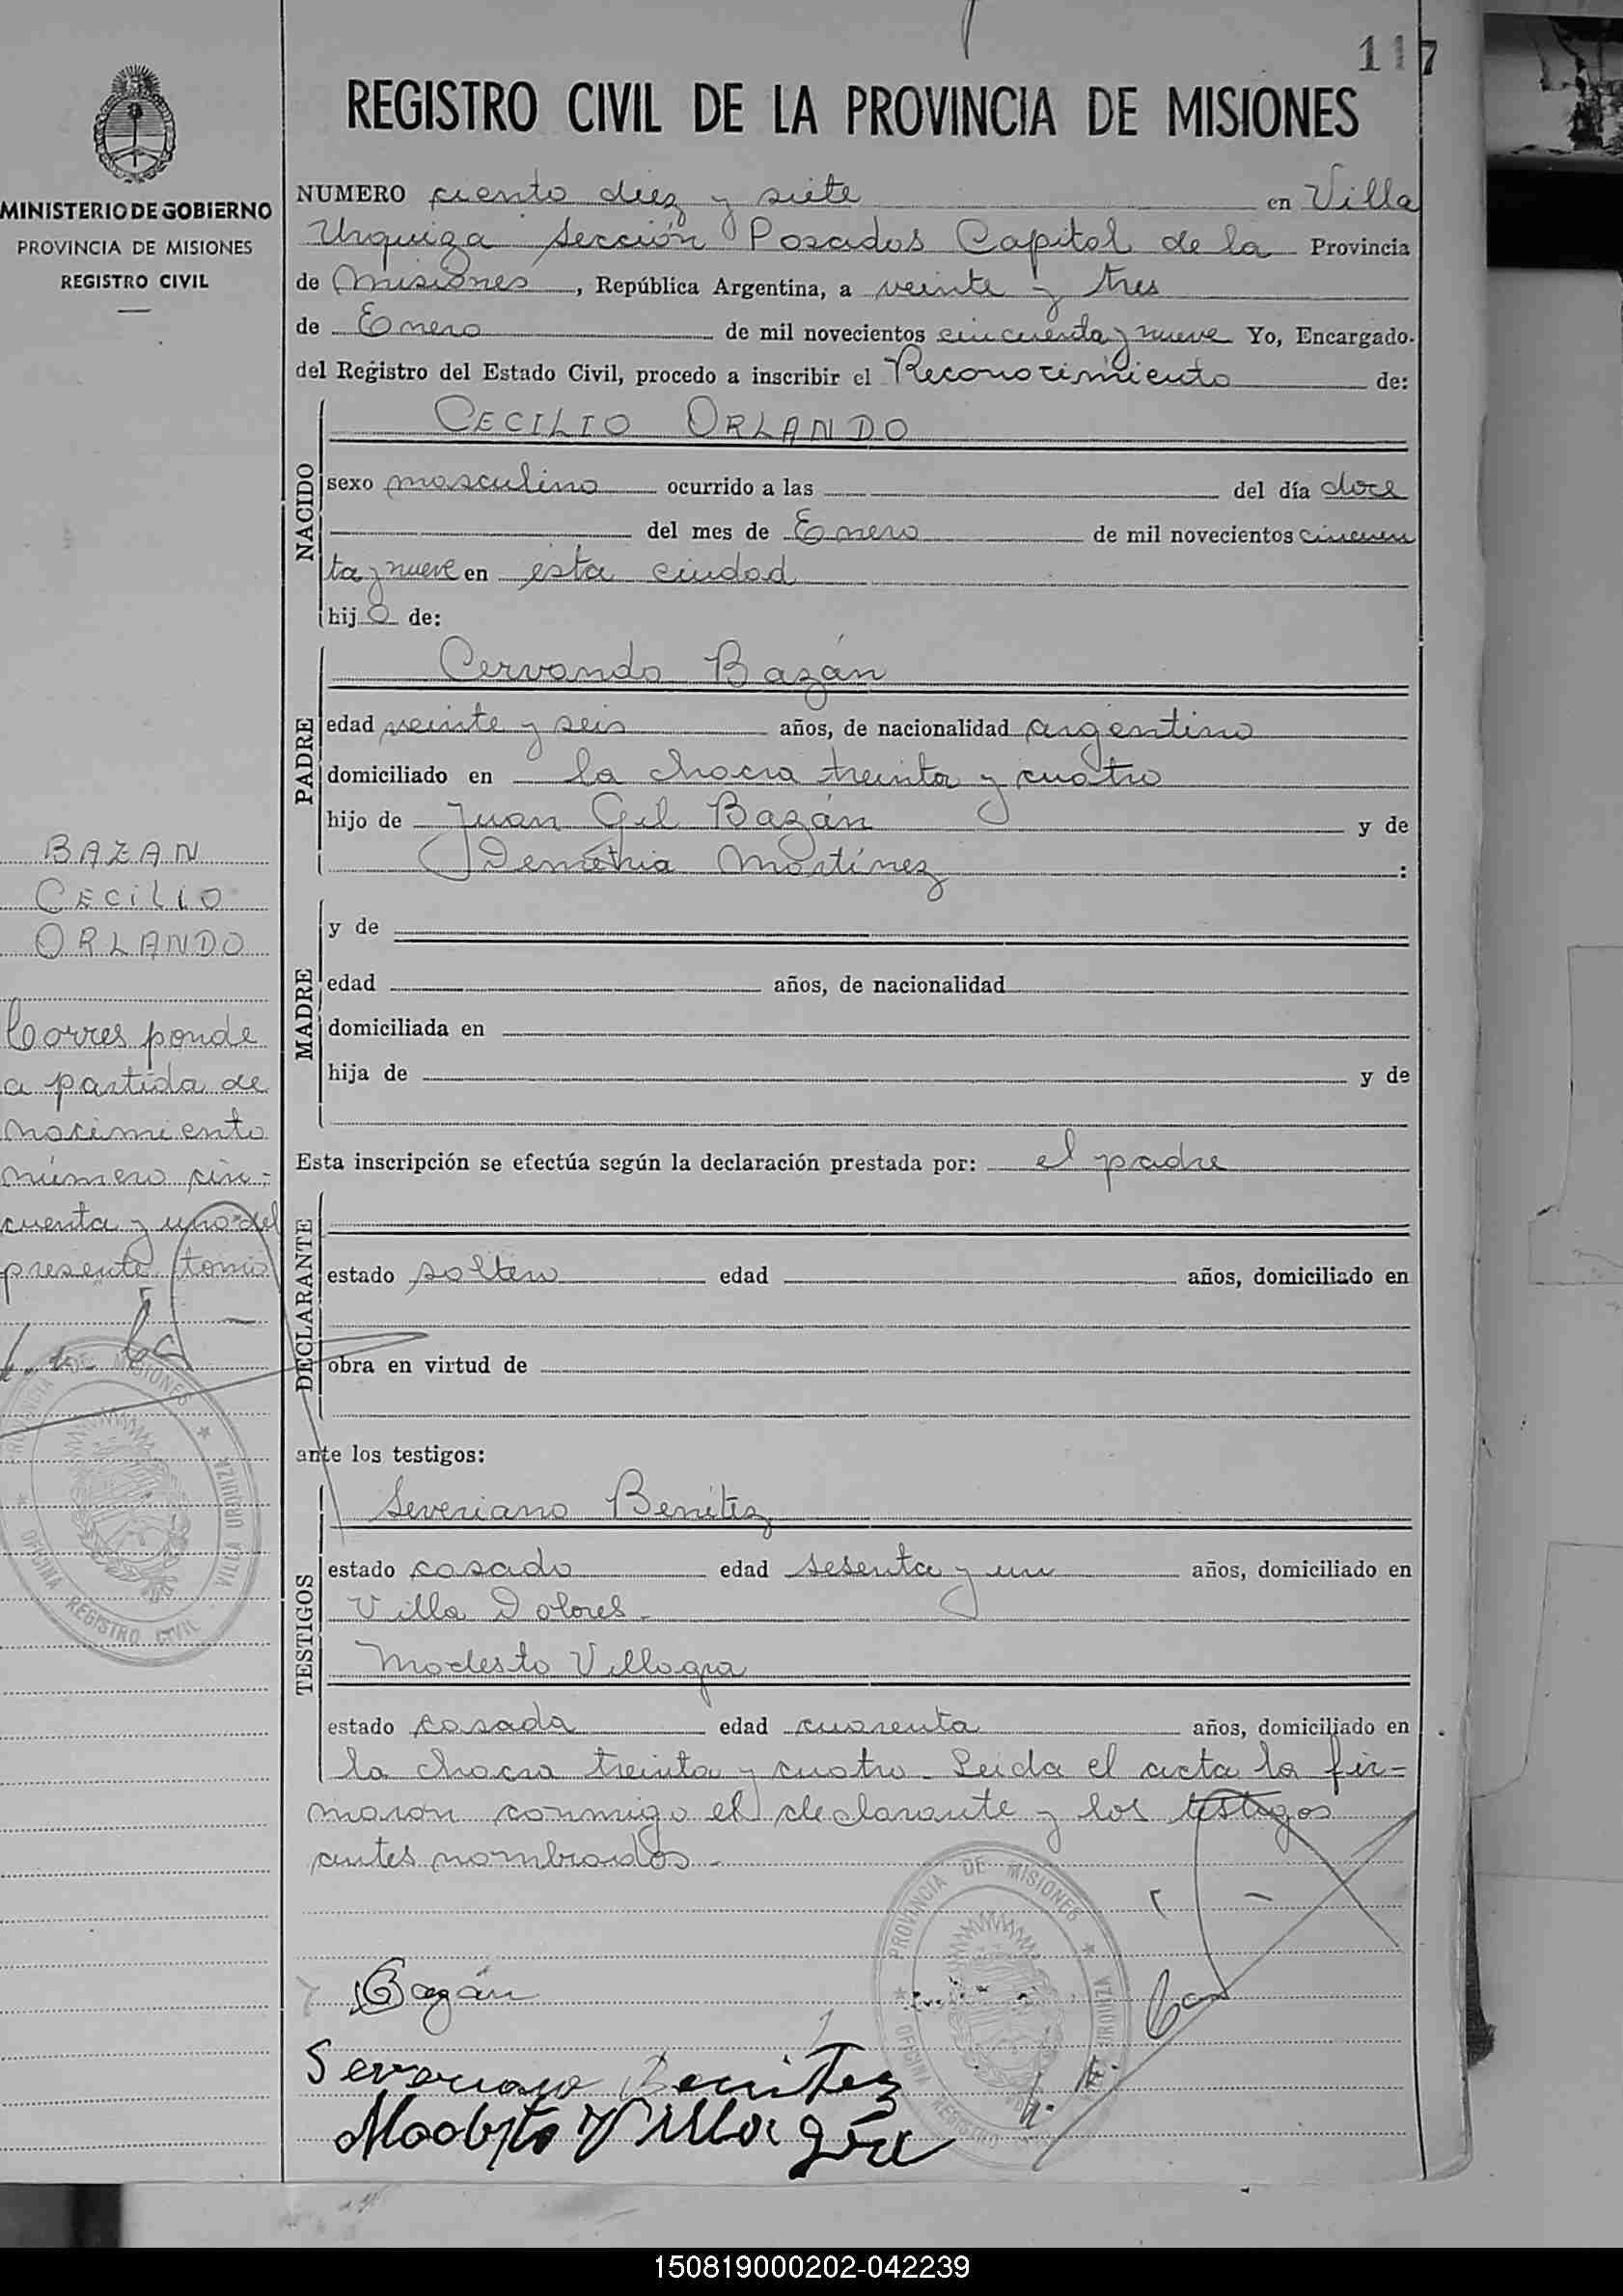 117
REGISTRO CIVIL DE LA PROVINCIA DE MISIONES
MINISTERIO DE GOBIERNO
PROVINCIA DE MISIONES
REGISTRO CIVIL
NUMERO ciento diez y siete en Villa
Urquiza Sección Posadas Capital de la Provincia
de Misiones, República Argentina, a veinte y tres
de Enero de mil novecientos cincuenta y nueve Yo, Encargado
del Registro del Estado Civil, procedo a inscribir el Reconocimiento de:
NACIDO
CECILIO ORLANDO
sexo masculino ocurrido a las del día doce
del mes de Enero de mil novecientos cincuen
ta y nueve en esta ciudad
hijo de:
PADRE
Cervando Bazán
edad veinte y seis años, de nacionalidad argentino
domiciliado en la chacra treinta y cuatro
hijo de Juan Gil Bazán y de
Demetria Martínez :
MADRE
y de
edad años, de nacionalidad
domiciliada en
hija de y de
Esta inscripción se efectúa según la declaración prestada por: el padre
DECLARANTE
estado soltero edad años, domiciliado en
obra en virtud de
ante los testigos:
TESTIGOS
Severiano Benítez
estado casado edad sesenta y un años, domiciliado en
Villa Dolores.
Modesto Villagra
estado casada edad cuarenta años, domiciliado en
la chacra treinta y cuatro. Leida el acta la fir=
maron conmigo el declarante y los testigos
antes nombrados.
Bazán
Severiano Benitez
Modesto Villagra
PROVINCIA DE MISIONES
VILLA URQUIZA
OFICINA REGISTRO CIVIL
BAZAN
CECILIO
ORLANDO
Corresponde
a partida de
nacimiento
número cin=
cuenta y uno del
presente tomo
PROVINCIA DE MISIONES
VILLA URQUIZA
OFICINA REGISTRO CIVIL
150819000202-042239